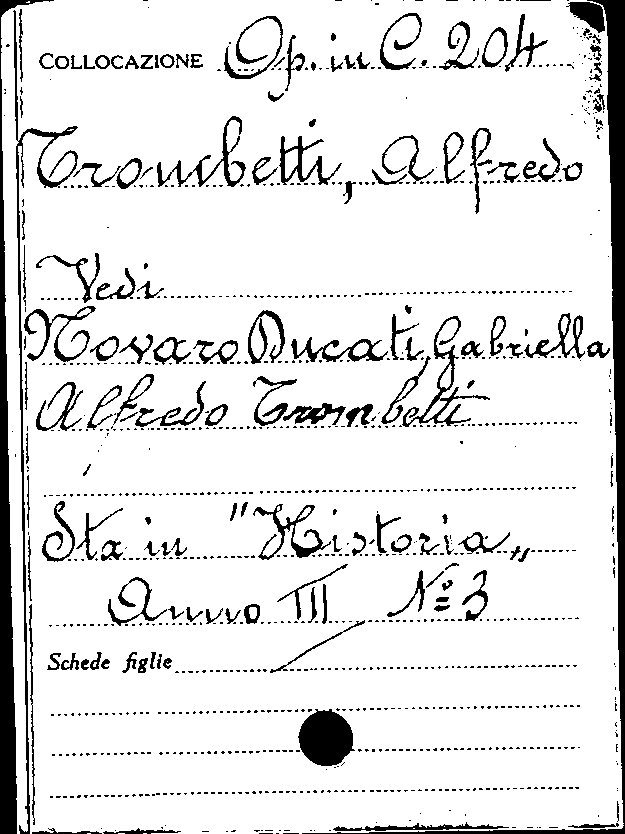 COLLOCAZIONE Op. in C. 204
Trombetti, Alfredo
Vedi
Novaro Ducati, Gabriella
Alfredo Trombetti
Sta in "Historia„
Anno III Nº 3
Schede figlie